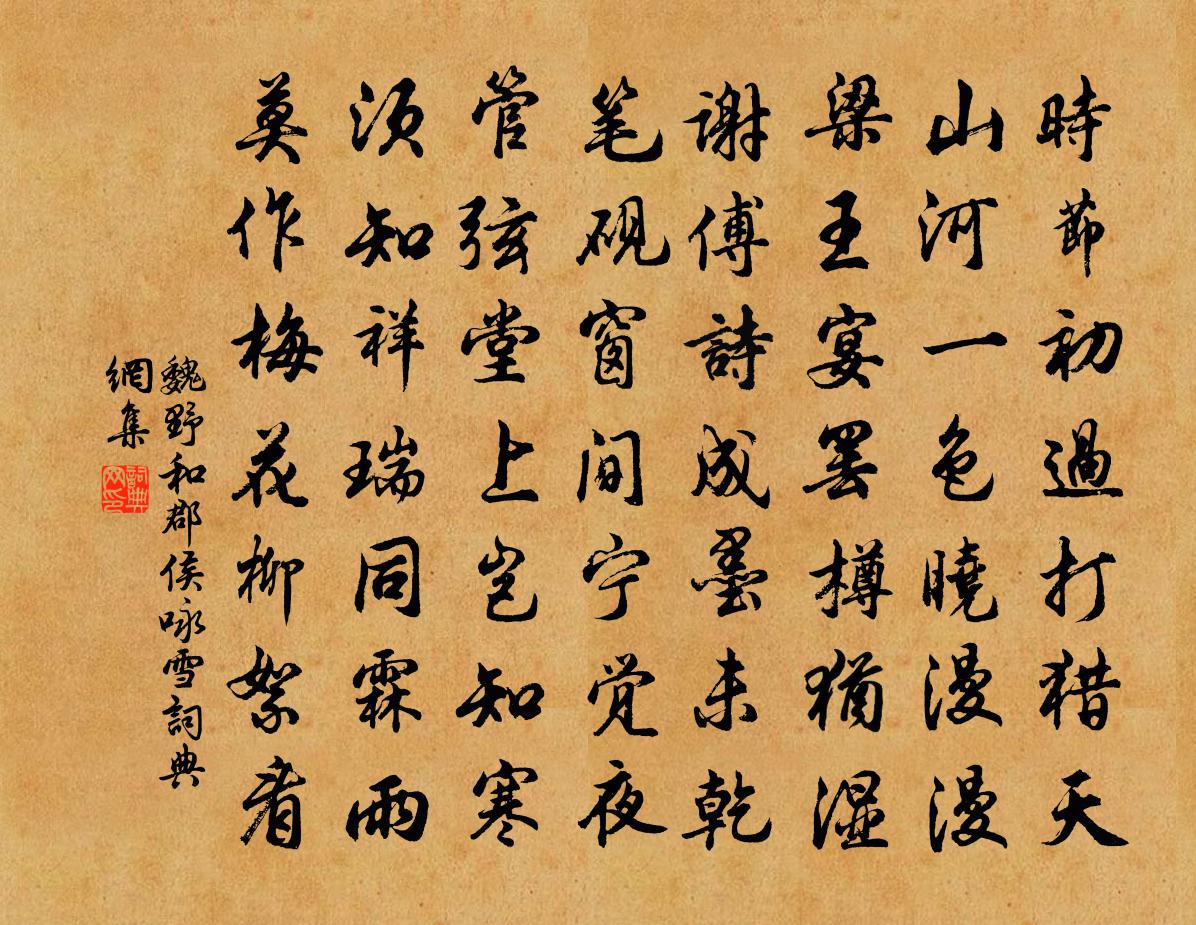 時節初過打猎天
山河一色曉漫漫
梁王宴罢樽猶湿
謝傅詩成墨未乾
笔砚窗间宁觉夜
管弦堂上岂知寒
须知祥瑞同霖雨
莫作梅花柳絮看
魏野和郡侯咏雪詞典
網集
詞典
网印